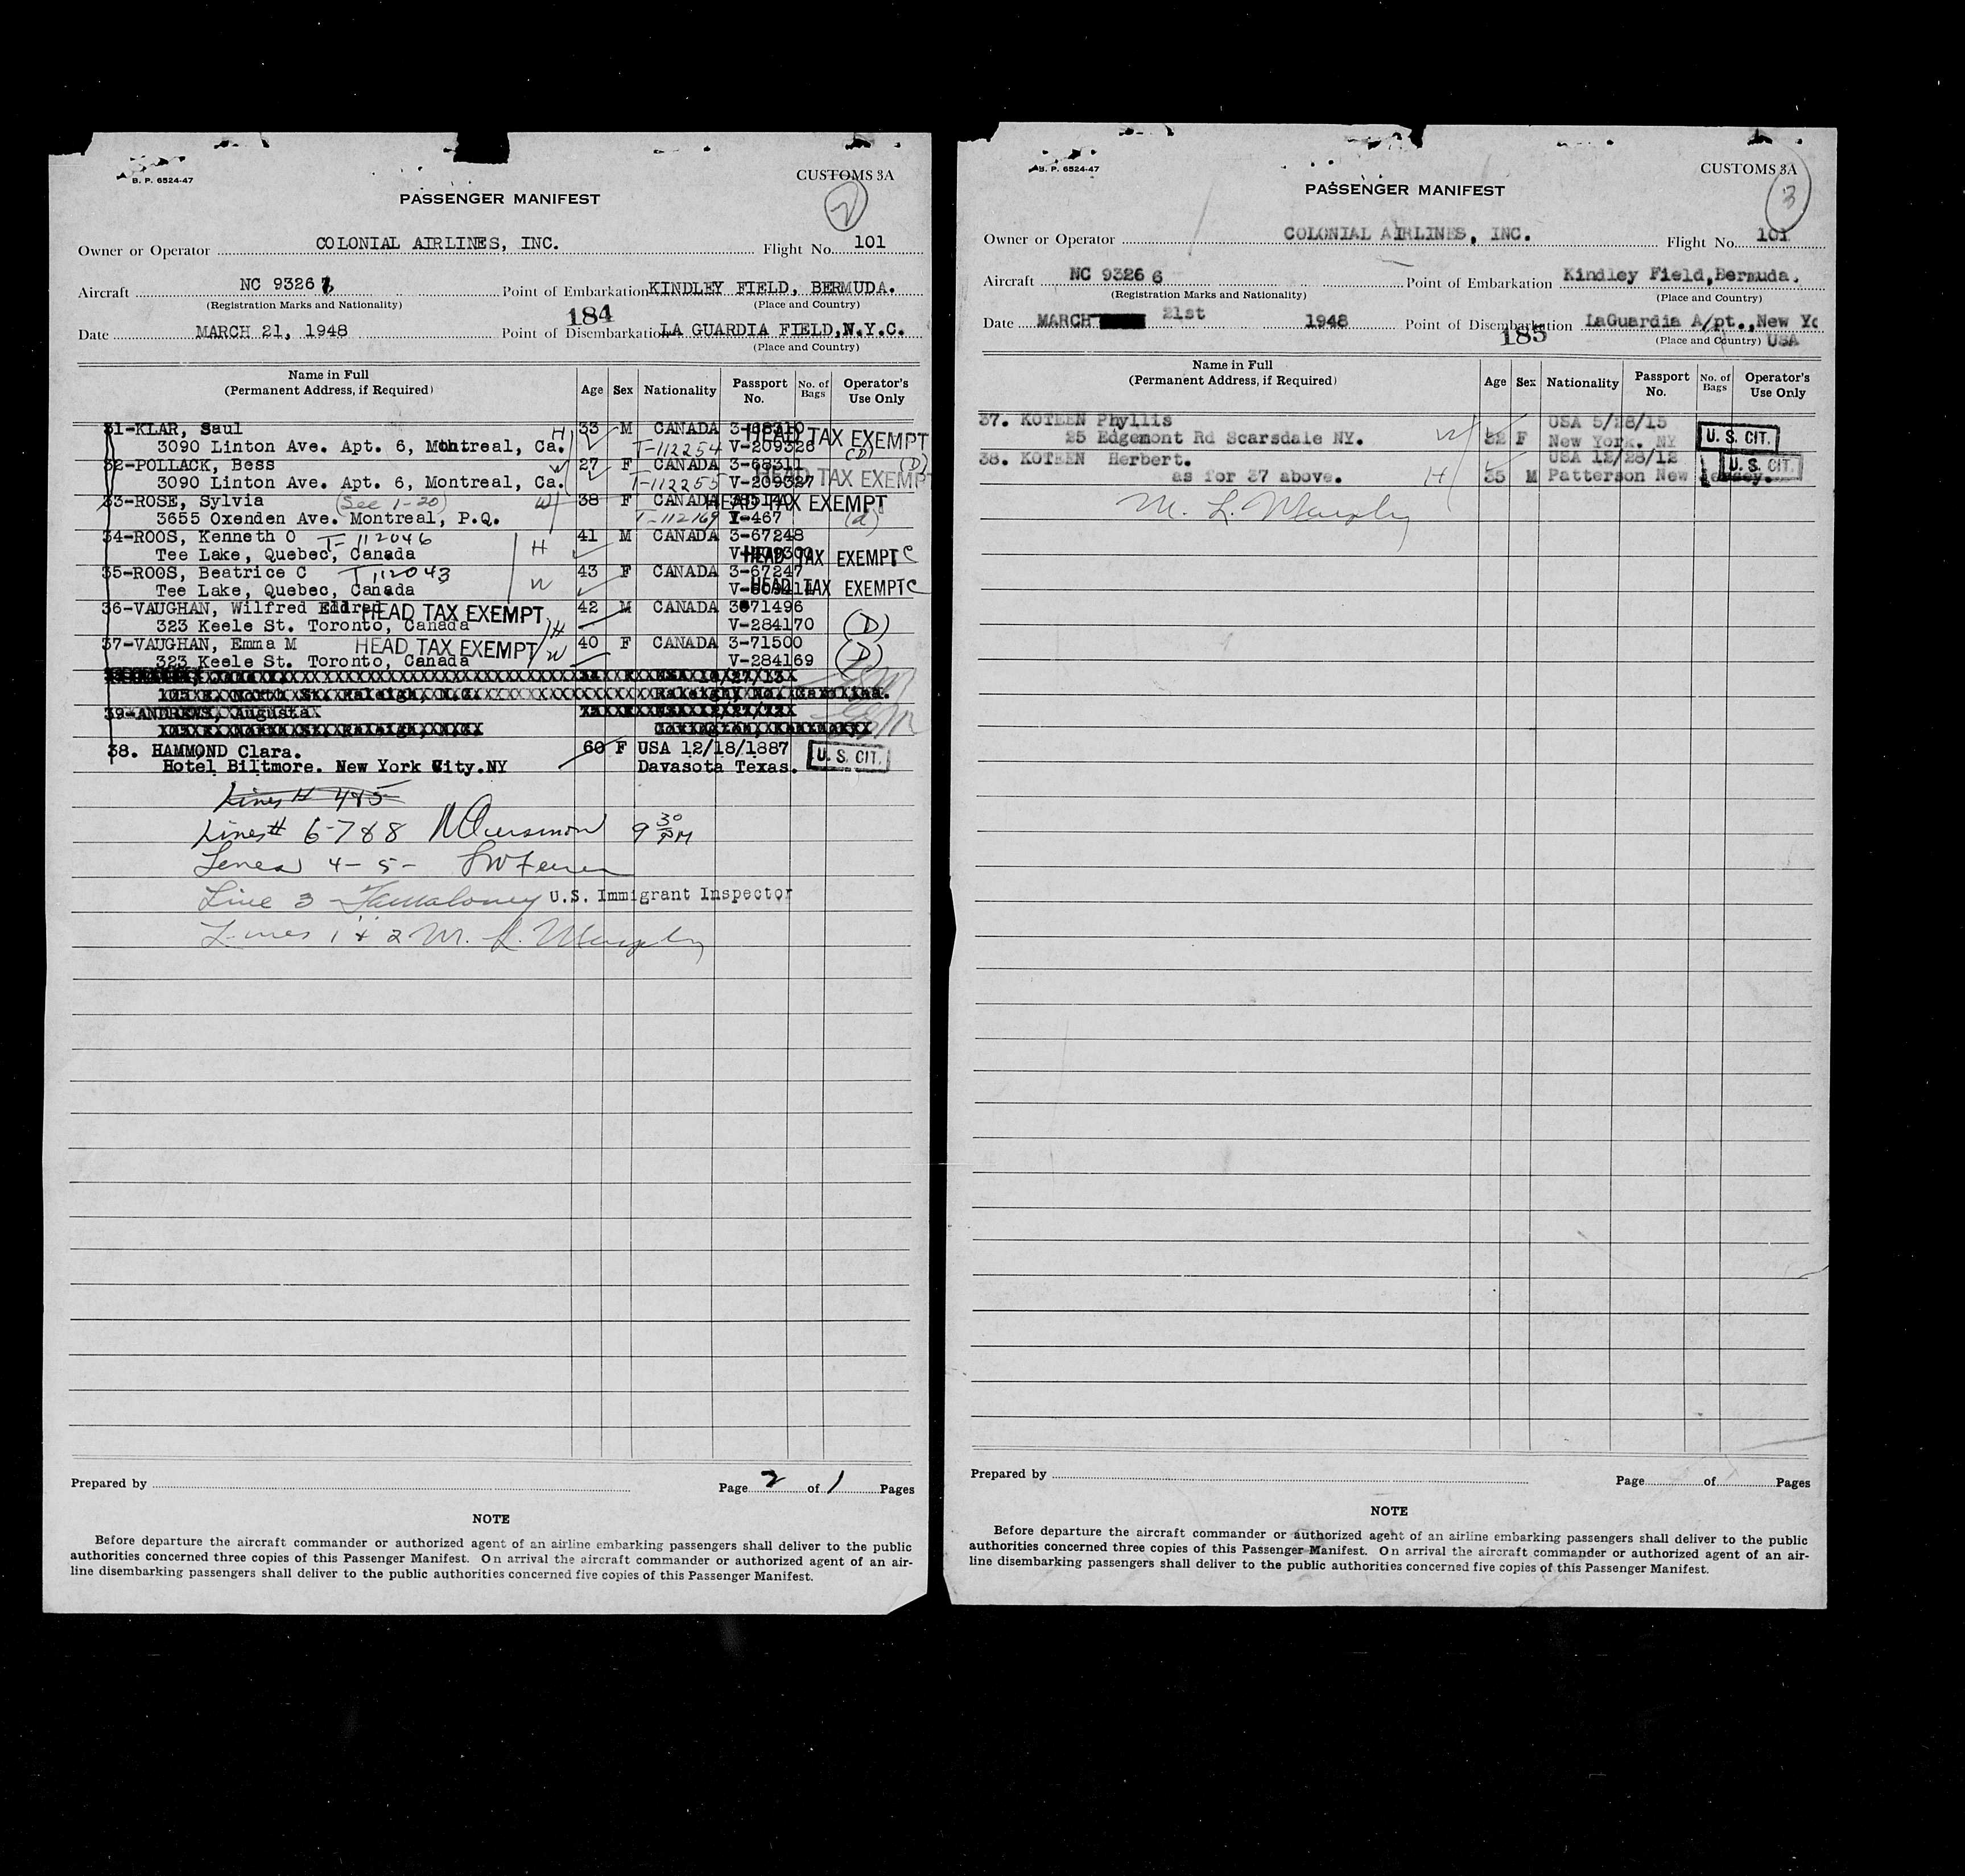 B. P. 6524-47
CUSTOMS 3A
2
PASSENGER MANIFEST
Owner or Operator COLONIAL AIRLINES, INC. Flight No. 101
Aircraft NC 9326 Point of Embarkation KINDLEY FIELD, BERMUDA.
(Registration Marks and Nationality) (Place and Country)
184
Date MARCH 21, 1948 Point of Disembarkation LA GUARDIA FIELD, N.Y.C.
(Place and Country)
Name in Full
(Permanent Address, if Required)
Age Sex Nationality Passport No. No. of Bags Operator's Use Only
31-KLAR, Saul H 33 M CANADA 3-68310
3090 Linton Ave. Apt. 6, Montreal, Ca. T-112254 V-209326 HEAD TAX EXEMPT (D)
32-POLLACK, Bess W 27 F CANADA 3-68311 (D)
3090 Linton Ave. Apt. 6, Montreal, Ca. T-112255 V-209327 HEAD TAX EXEMPT
33-ROSE, Sylvia (See 1-20) W 38 F CANADA HEAD TAX EXEMPT
3655 Oxenden Ave. Montreal, P.Q. T-112169 I-467 (d)
34-ROOS, Kenneth O T-112046 H 41 M CANADA 3-67248
Tee Lake, Quebec, Canada HEAD TAX EXEMPT C
35-ROOS, Beatrice C T 112043 W 43 F CANADA 3-67247
Tee Lake, Quebec, Canada HEAD TAX EXEMPT C
36-VAUGHAN, Wilfred Eldred HEAD TAX EXEMPT 42 M CANADA 3-71496
323 Keele St. Toronto, Canada H V-284170 (D)
37-VAUGHAN, Emma M HEAD TAX EXEMPT 40 F CANADA 3-71500
323 Keele St. Toronto, Canada W V-284169 (D)
39-ANDREWS, Augusta
38. HAMMOND Clara. 60 F USA 12/18/1887 U. S. CIT.
Hotel Biltmore. New York City.NY Davasota Texas.
Lines # 4&5
Lines # 6-7&8 9 30 PM
Lines 4-5-
Line 3 U.S. Immigrant Inspector
Lines 1 & 2 M. L. Murphy
Prepared by Page 2 of 1 Pages
NOTE
Before departure the aircraft commander or authorized agent of an airline embarking passengers shall deliver to the public
authorities concerned three copies of this Passenger Manifest. On arrival the aircraft commander or authorized agent of an air-
line disembarking passengers shall deliver to the public authorities concerned five copies of this Passenger Manifest.
B. P. 6524-47
CUSTOMS 3A
3
PASSENGER MANIFEST
Owner or Operator COLONIAL AIRLINES, INC. Flight No. 101
Aircraft NC 9326 6 Point of Embarkation Kindley Field,Bermuda.
(Registration Marks and Nationality) (Place and Country)
Date MARCH 21st 1948 Point of Disembarkation LaGuardia A/pt.,New Yo
185 (Place and Country) USA
Name in Full
(Permanent Address, if Required)
Age Sex Nationality Passport No. No. of Bags Operator's Use Only
37. KOTEEN Phyllis USA 5/28/15
25 Edgemont Rd Scarsdale NY. W 32 F New York. NY U. S. CIT.
38. KOTEEN Herbert. USA 12/28/12 U. S. CIT.
as for 37 above. H 35 M Patterson New Jersey.
M. L. Murphy
Prepared by Page of Pages
NOTE
Before departure the aircraft commander or authorized agent of an airline embarking passengers shall deliver to the public
authorities concerned three copies of this Passenger Manifest. On arrival the aircraft commander or authorized agent of an air-
line disembarking passengers shall deliver to the public authorities concerned five copies of this Passenger Manifest.